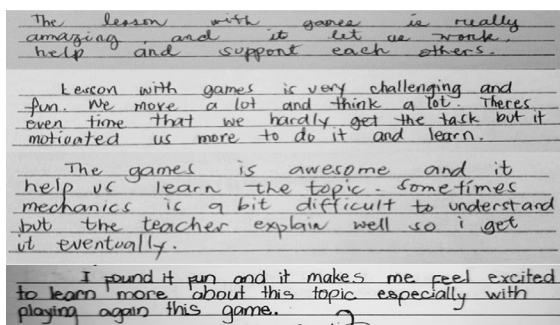 The lesson with games is really
amazing and it let us work,
help and support each others.
Lesson with games is very challenging and
fun. We move a lot and think a lot. Theres
even time that we hardly get the task but it
motivated us more to do it and learn.
The games is awesome and it
help us learn the topic. Sometimes
mechanics is a bit difficult to understand
but the teacher explain well so i get
it eventually.
I found it fun and it makes me feel excited
to learn more about this topic especially with
playing again this game.